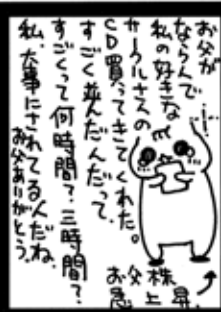 お父が
ならんで
私の好きな
サークルさんの
CD買ってきてくれた。
すごく並んだんだって
すごくって何時間?三時間?
私、大事にされてるんだね
お父ありがとう。
お父株
急上昇